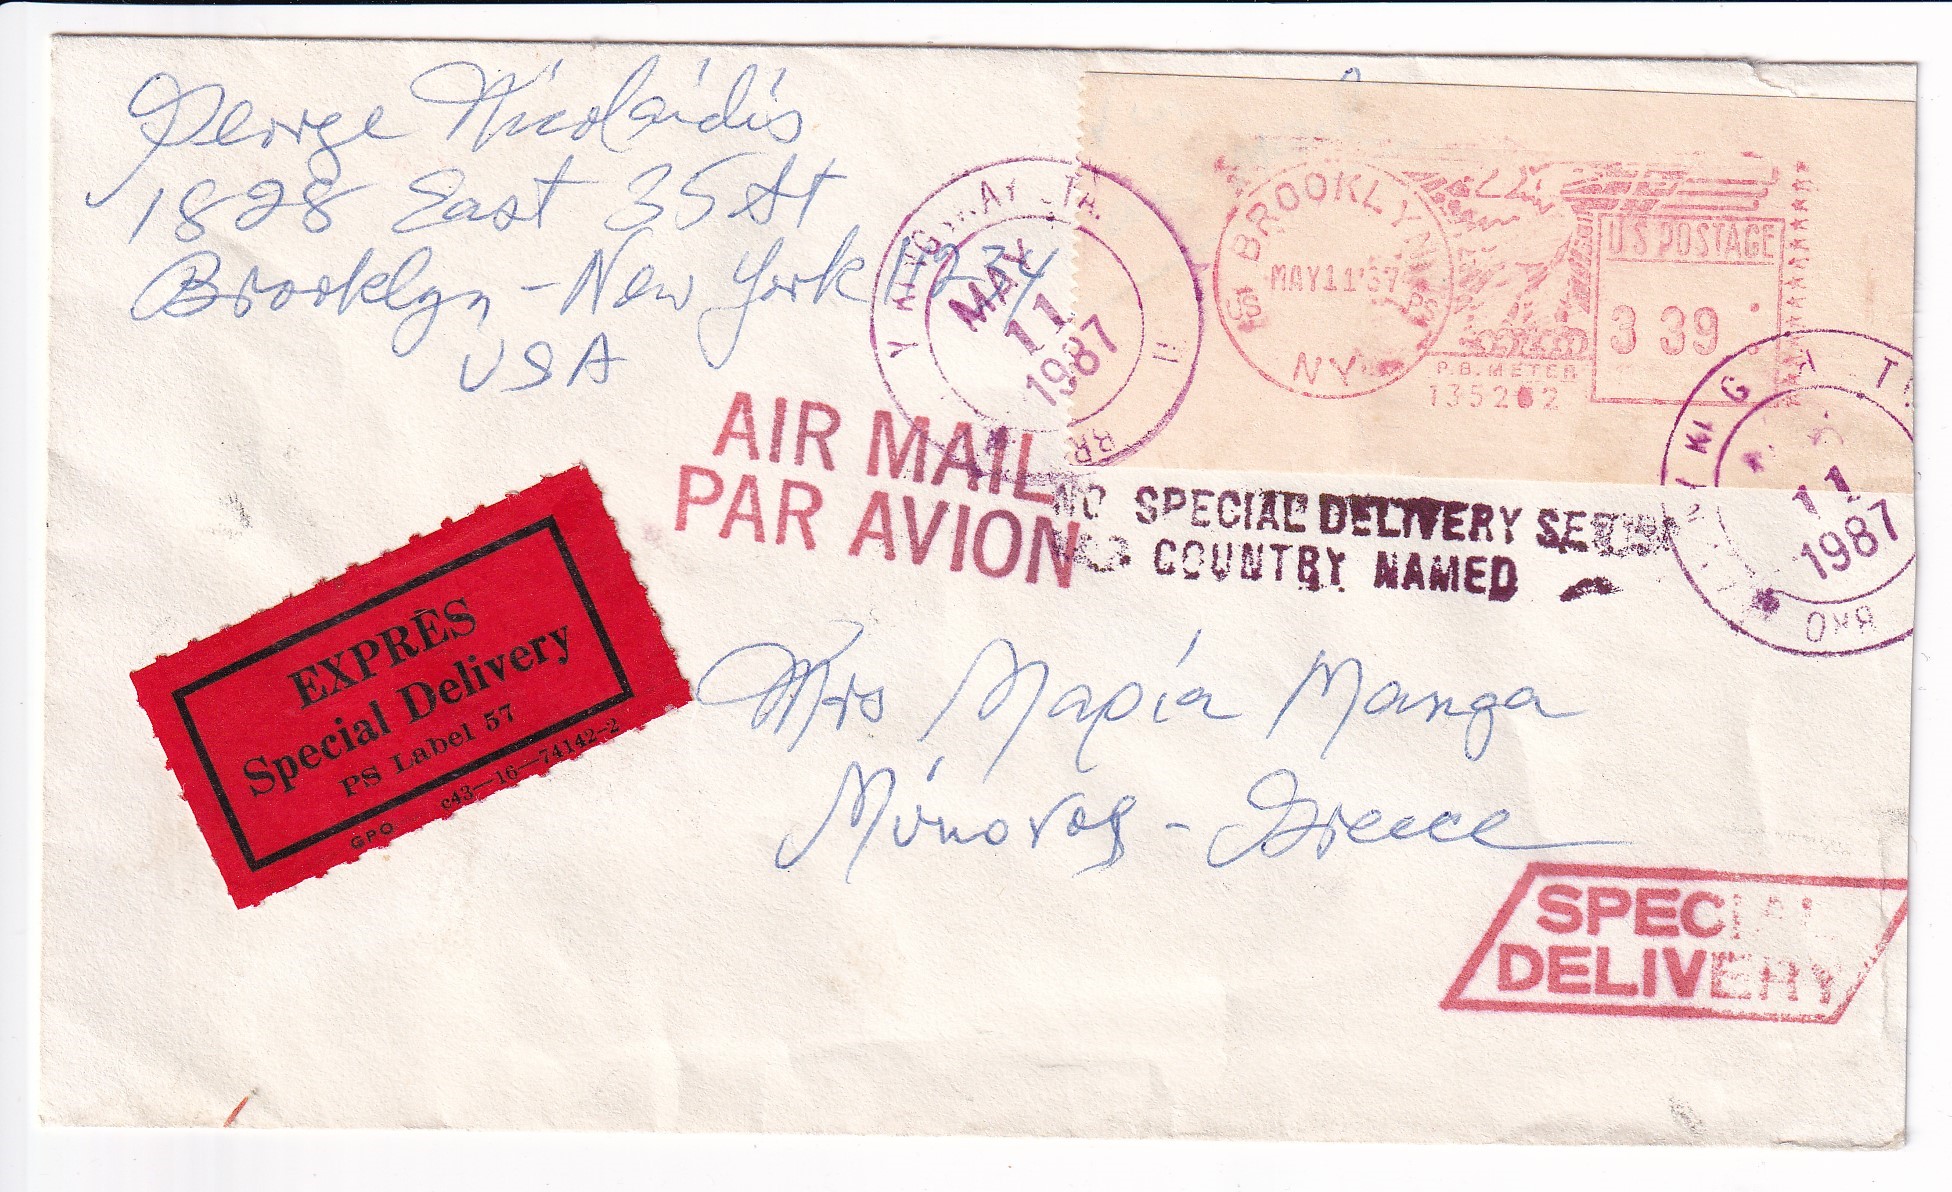 George Nicolaidis
1828 East 35 St
Brooklyn - New York 11234
USA
MAY
11
1987
BROOKLYN
MAY 11 '87
US PS
NY
U.S. POSTAGE
3 39
P.B. METER
AIR MAIL
PAR AVION
NO SPECIAL DELIVERY
COUNTRY NAMED
11
1987
EXPRÈS
Special Delivery
PS Label 57
GPO c43—16—74142-2
Mrs Μαρία Manga
Μύκονος - Greece
SPECIAL
DELIVERY